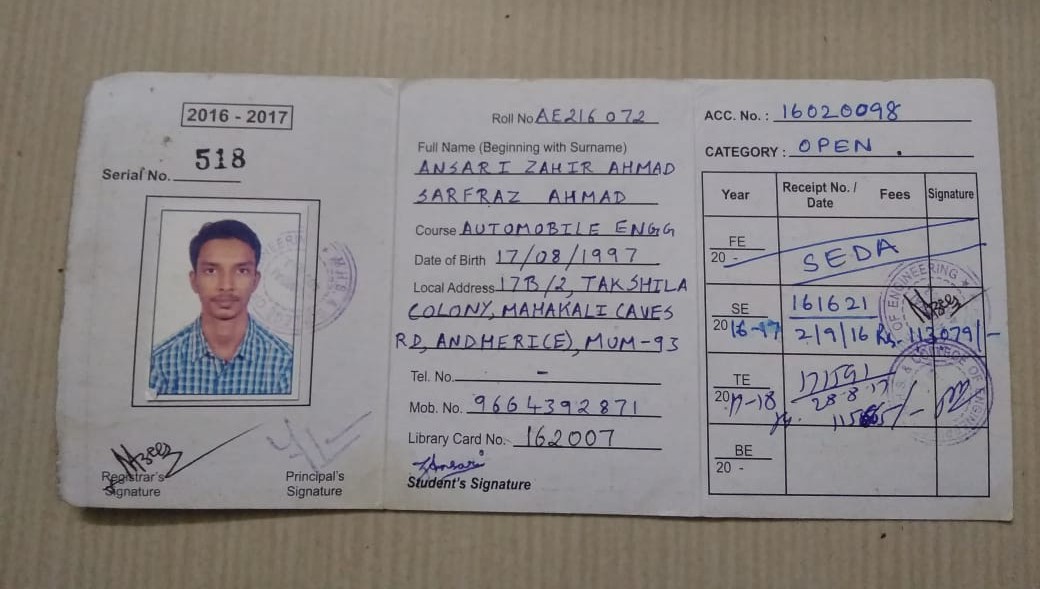 2016 - 2017
Serial No. 518
Registrar's
Signature
Principal's
Signature
Roll No AE216 072
Full Name (Beginning with Surname)
ANSARI ZAHIR AHMAD
SARFRAZ AHMAD
Course AUTOMOBILE ENGG
Date of Birth 17/08/1997
Local Address 17B/2, TAKSHILA
COLONY, MAHAKALI CAVES
RD, ANDHERI(E), MUM-93
Tel. No. -
Mob. No. 9664392871
Library Card No. 162007
ZAnsari
Student's Signature
ACC. No. : 16020098
CATEGORY : OPEN .
Year Receipt No. / Date Fees Signature
FE
20 - SEDA
SE 161621
2016-17 2/9/16 Rs. 113079/-
TE 171591
2017-18 28.8.17
BE
20 -
OF ENGINEERING
COLLEGE OF ENGINEE